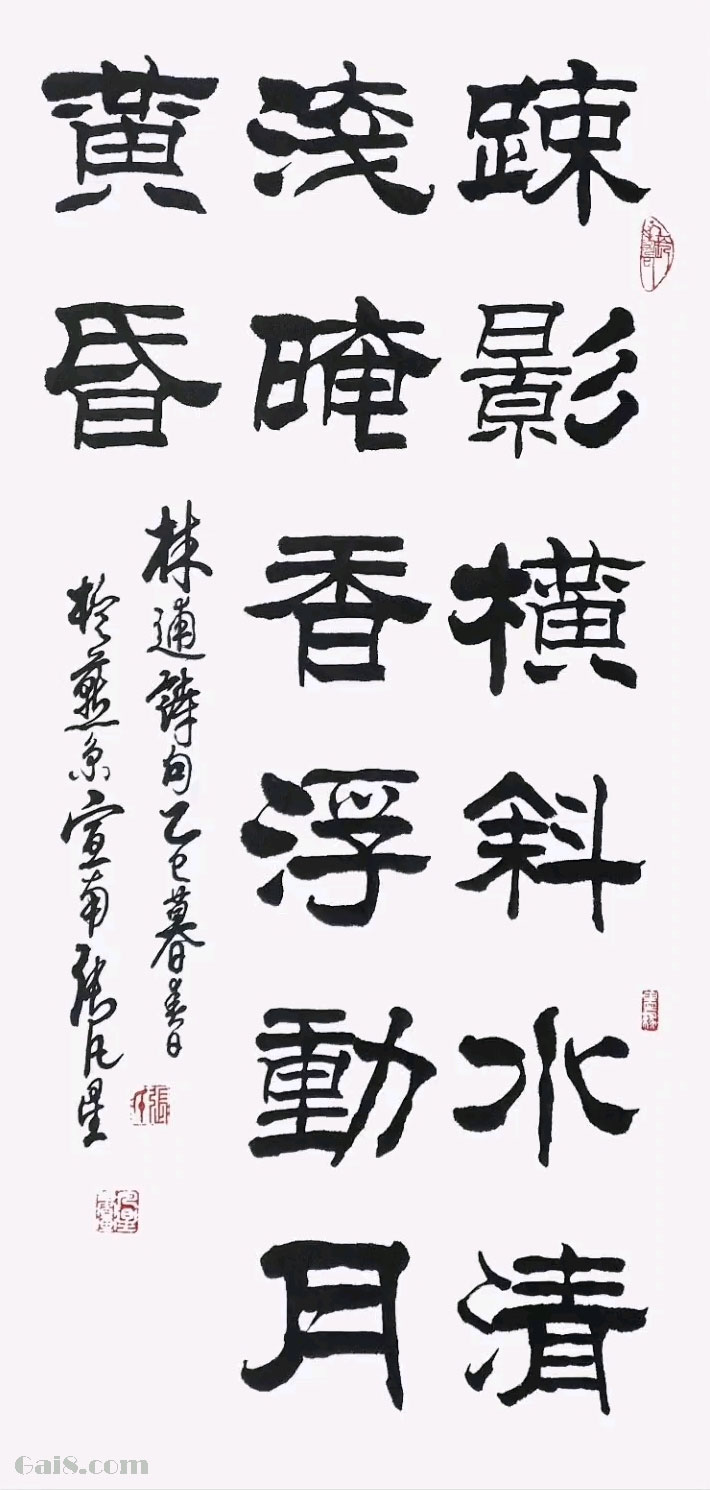 踈影橫斜水清
淺晻香浮動月
黃昏
林逋詩句乙巳暮春日
於燕京宣南張凡星
Gai8.com